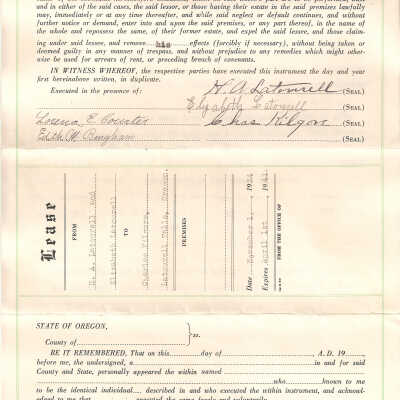 either in any of the said cases, the said lessor or those having their estate in the said premises lawfully
may, immediately or at any time thereafter, and while said neglect or default continues, and without
further notice or demand, enter into and upon the said premises, or any part thereof, in the name of
the whole and repossess the same, of their former estate, and expel the said lessee, and those claim-
ing under said lessee, and remove his effects (forcibly if necessary), without being taken or
deemed guilty in any manner of trespass, and without prejudice to any remedies which might other-
wise be used for arrears of rent, or preceding breach of covenants.
IN WITNESS WHEREOF, the respective parties have executed this instrument the day and year
first hereinabove written, in duplicate.
Executed in the presence of: H. A. Latourell (SEAL)
Elizabeth Latourell (SEAL)
Lorena E. Courter Chas Kilgore (SEAL)
Edith M. Bingham (SEAL)
Lease
FROM
H. A. Latourell and
Elizabeth Latourell
TO
Charles Kilgore,
Latourell Falls, Oregon.
PREMISES
Date November 1, 19
Expires April 1st 19
FROM THE OFFICE OF
STATE OF OREGON, } ss.
County of
BE IT REMEMBERED, That on this day of A. D. 19
before me, the undersigned, a in and for said
County and State, personally appeared the within named
who known to me
to be the identical individual described in and who executed the within instrument, and acknowl-
edged to me that executed the same freely and voluntarily.